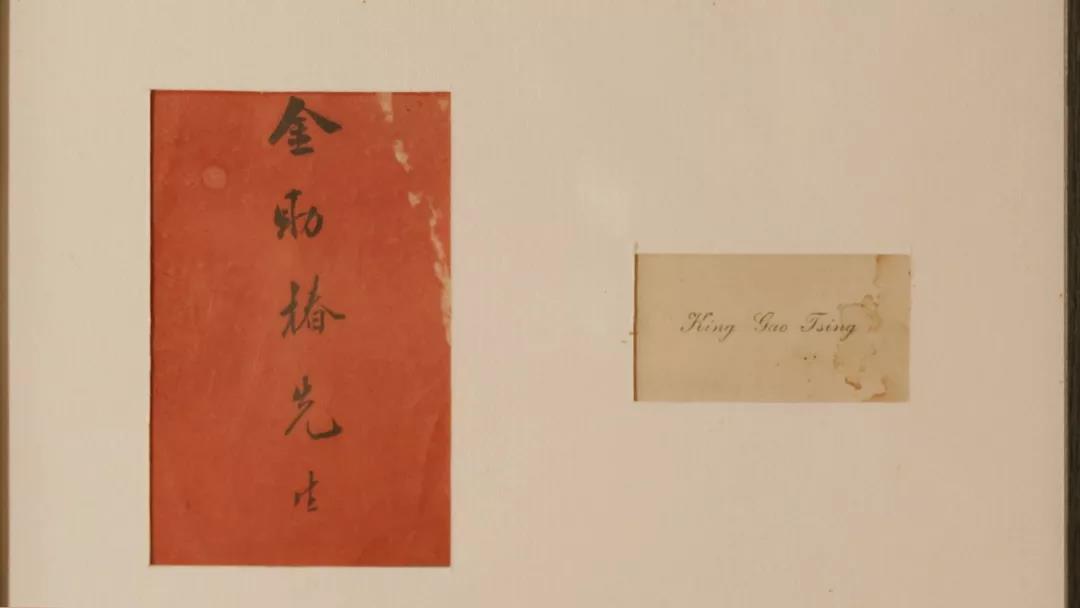 金助椿先生
King Gao Tsing